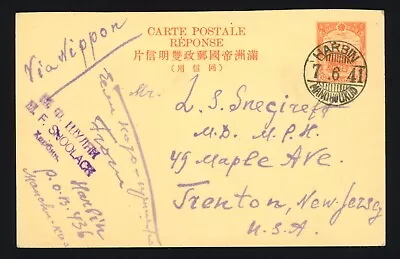 CARTE POSTALE
RÉPONSE
滿洲帝國郵政雙明信片
(回信用)
HARBIN
7.6.41
MANCHOUKUO
Via Nippon
Mr.
L. S. Snegireff
M.D. M.P.H.
49 Maple Ave.
Trenton, New Jersey
U.S.A.
Ф. ШУЛАК
F. SHOOLACK
Харбин
Harbin
P.O.B. 436
Manchu-Kuo